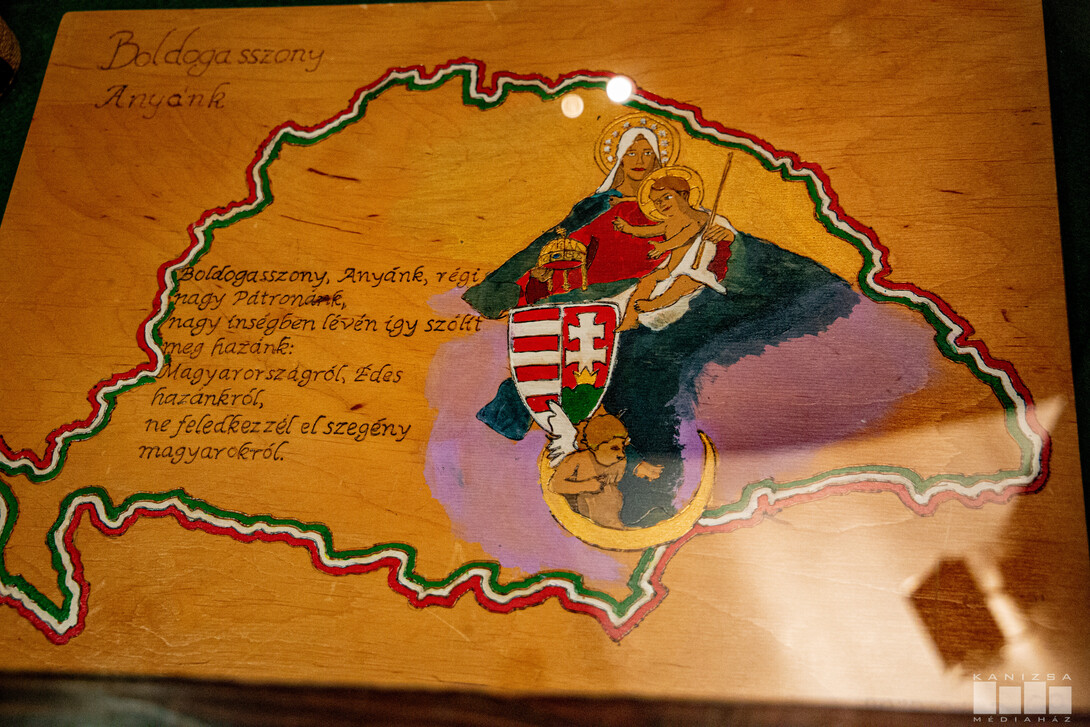 Boldogasszony
Anyánk
Boldogasszony, Anyánk, régi
nagy Pátronánk,
nagy ínségben lévén így szólít
meg hazánk:
Magyarországról, Édes
hazánkról,
ne feledkezzél el szegény
magyarokról.
KANIZSA
MÉDIAHÁZ